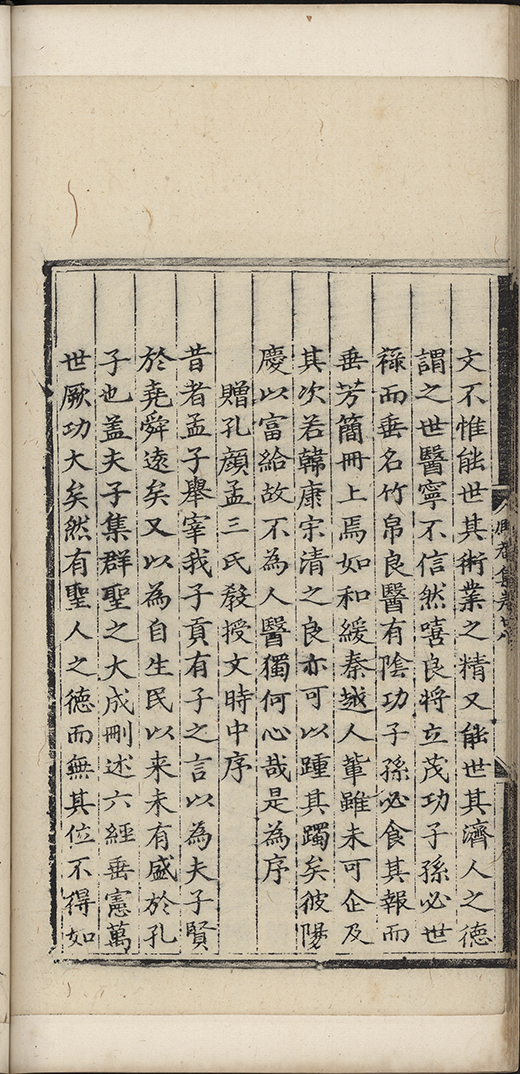 文不惟能世其術業之精又能世其濟人之德
謂之世醫寧不信然嘻良將立茂功子孫必世
祿而垂名竹帛良醫有陰功子孫必食其報而
垂芳簡冊上焉如和緩秦越人軰雖未可企及
其次若韓康宗清之良亦可以踵其躅矣彼陽
慶以富給故不為人醫獨何心哉是為序
贈孔顔孟三氏敎授文時中序
昔者孟子舉宰我子貢有子之言以為夫子賢
於堯舜遠矣又以為自生民以来未有盛於孔
子也盖夫子集群聖之大成刪述六經垂憲萬
世厥功大矣然有聖人之德而無其位不得如